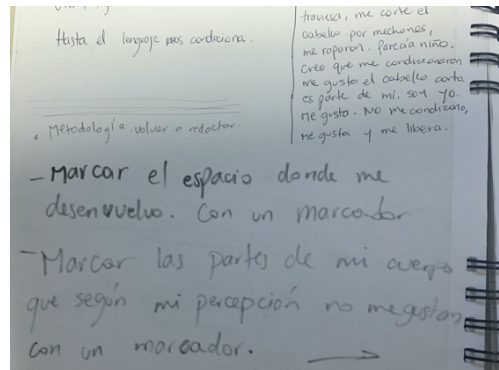 Hasta el lenguaje nos condiciona.
• Metodología. volver a redactar.
traviesa, me corté el
cabello por mechones,
me raparon. Parecía niño.
Creo que me condicionaron
me gusta el cabello corto.
es parte de mi. soy yo.
Me gusta. NO me condiciono,
me gusta y me libera.
- Marcar el espacio donde me
desenvuelvo. Con un marcador
- Marcar las partes de mi cuerpo
que según mi percepción no me gustan
con un marcador.